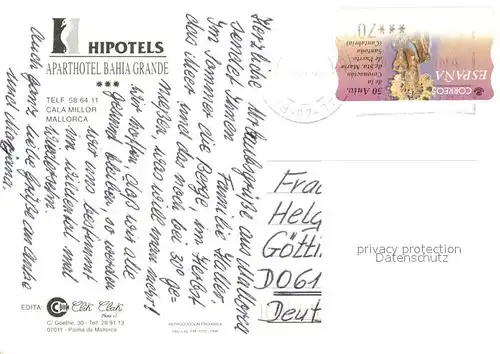 HIPOTELS
APARTHOTEL BAHIA GRANDE
***
TELF. 58 64 11
CALA MILLOR
MALLORCA
Herzliche Urlaubsgrüße aus Mallorca
sendet Ihnen Familie
Im Sommer die Berge, im Herbst
das Meer und das noch bei 30° ge-
nießen, was will man mehr!
Wir hoffen, daß wir alle
gesund bleiben, so werden
wir uns bestimmt
im Wildental mal
wiedersehen.
Auch ganz liebe Grüße an Anke
und
EDITA:
Clik Clak
C/ Goethe, 30 - Telf. 28 91 13
07011 - Palma de Mallorca
REPRODUCCION PROHIBIDA
70
ESPAÑA
CORREOS
50 Aniv.
Coronación
de Sta. María
de Puerto.
Santoña
(Cantabria)
Frau
Helg
Götti
D061
Deut
privacy protection
Datenschutz